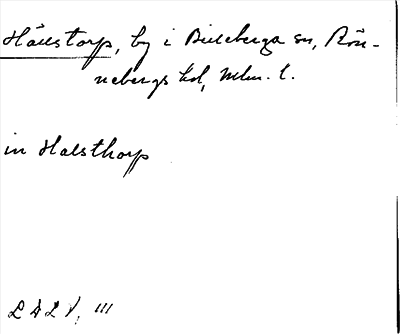 Hällstorp, by i Billeberga sn, Rön-
nebergs hd, Mlm. l.
in Halsthorp